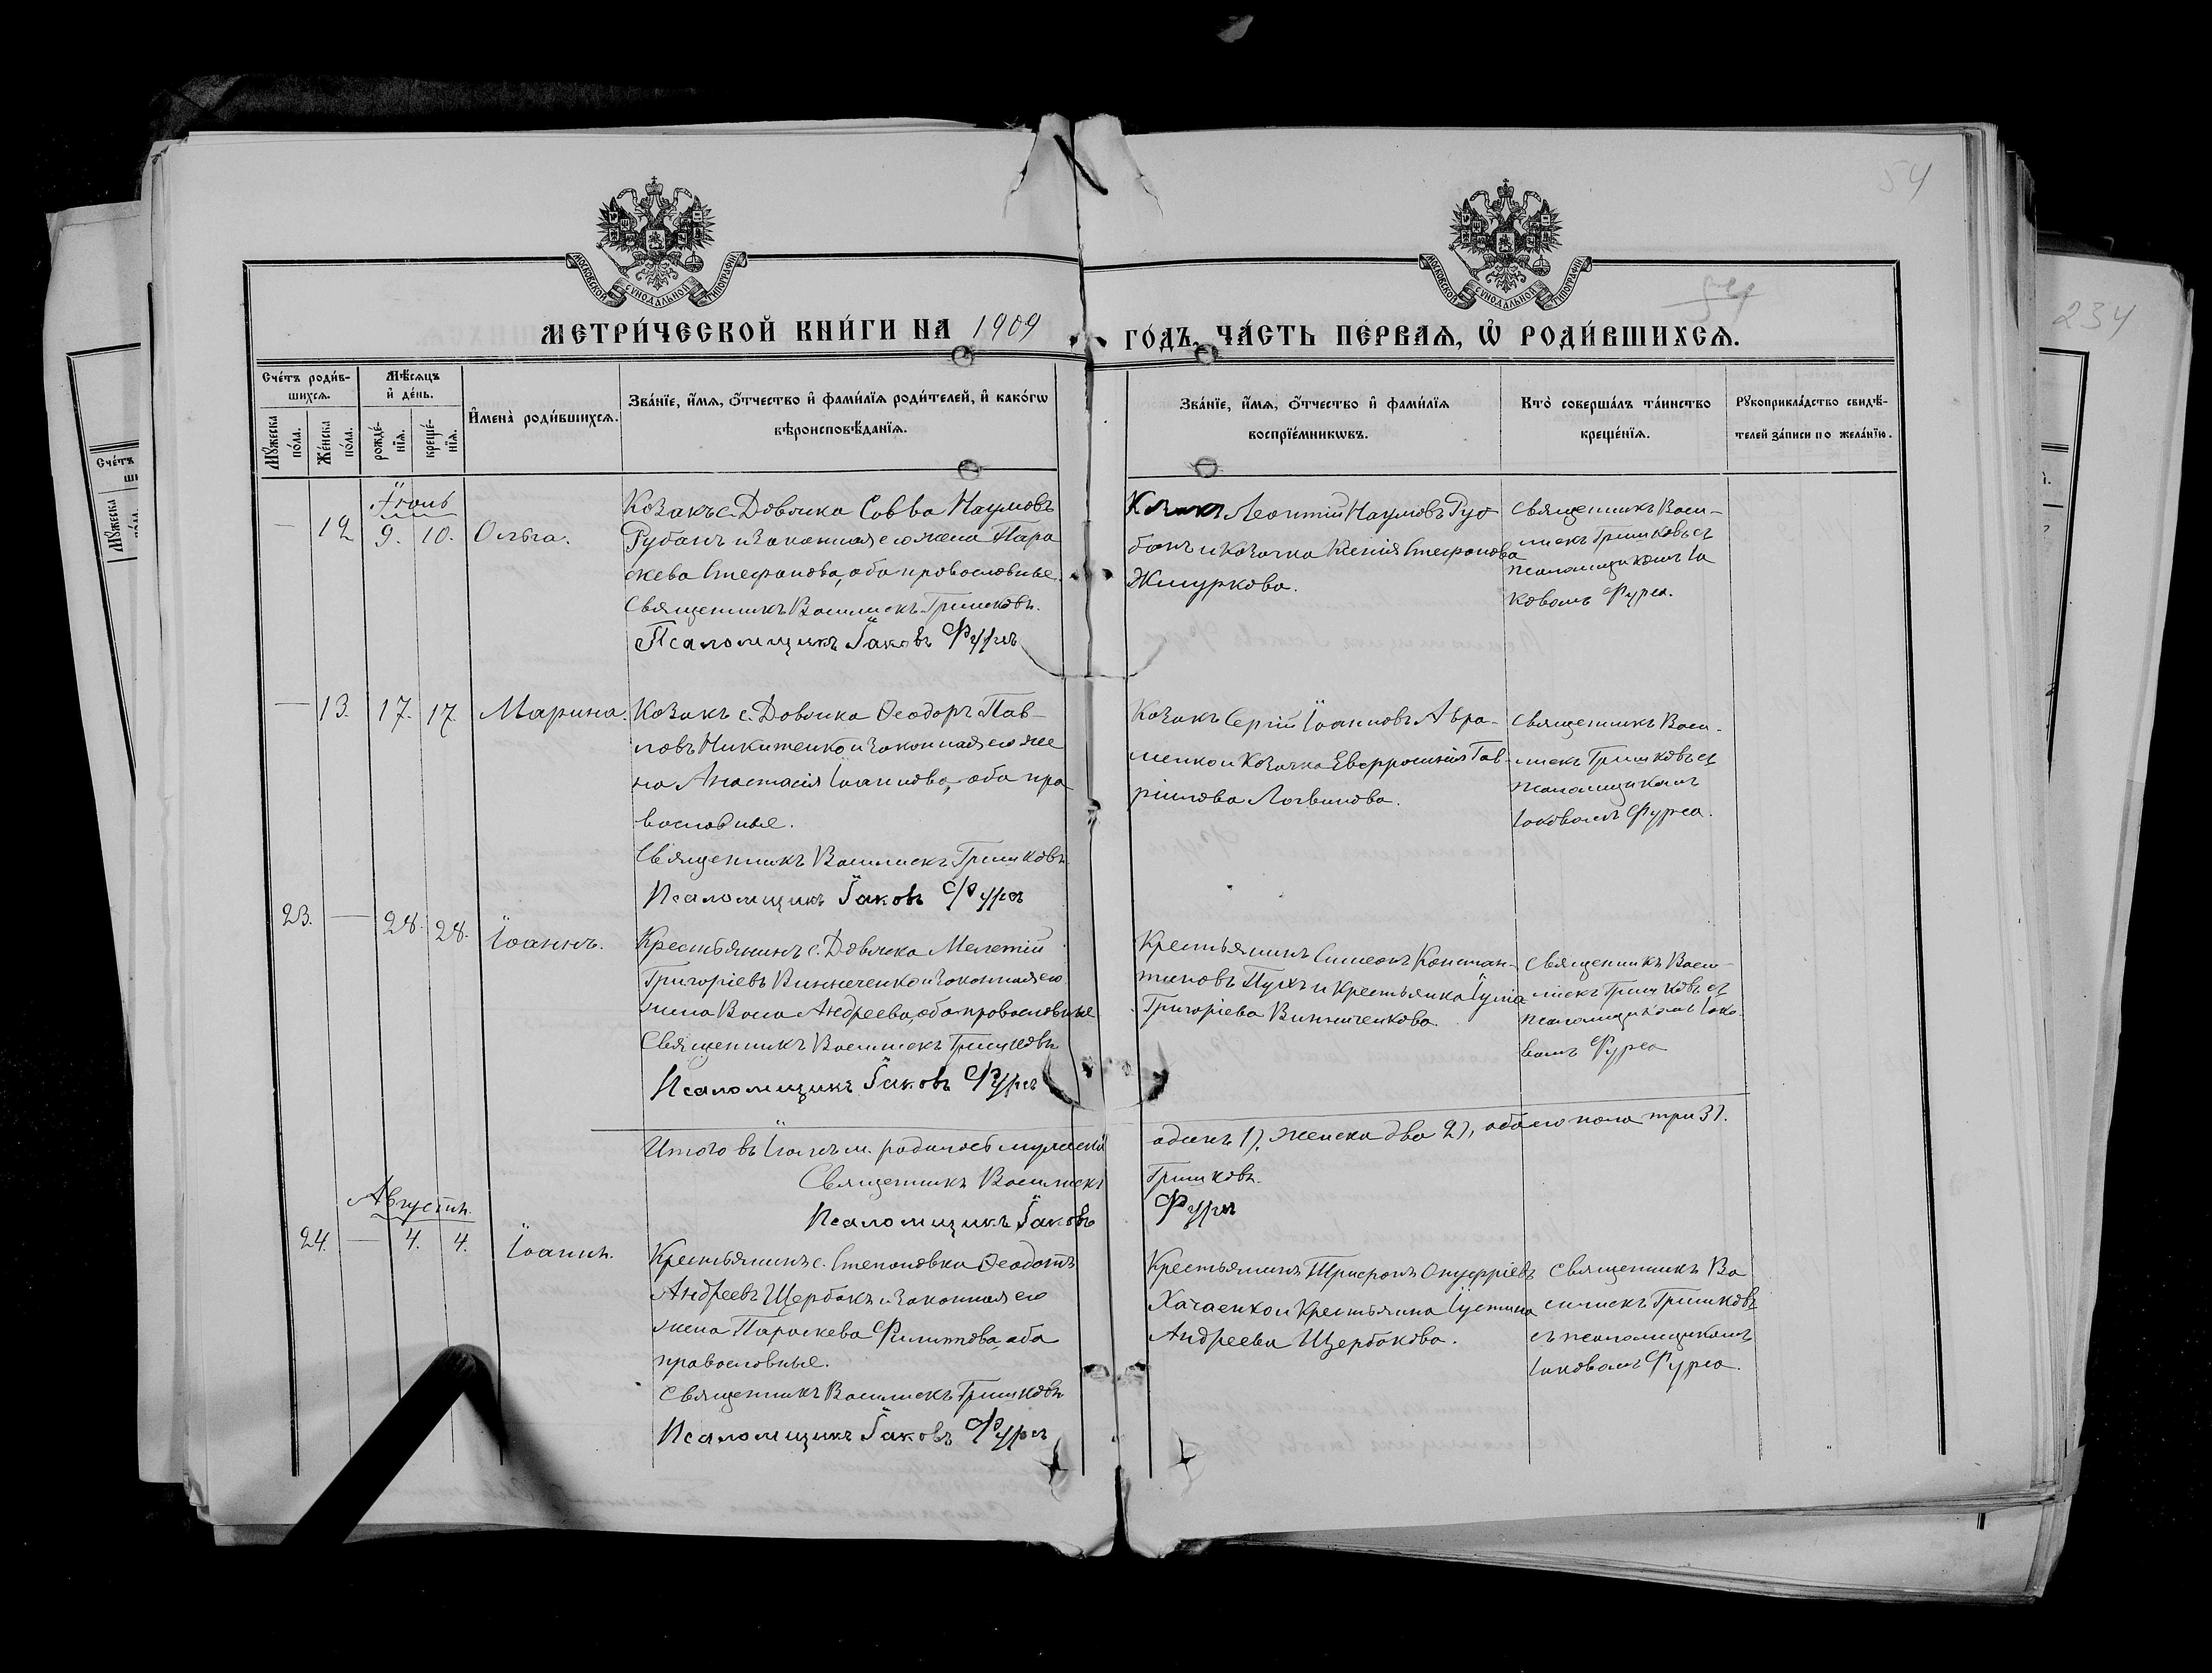 54
МОСКОВСКОЙ СѴНОДАЛЬНОЙ ТИПОГРАФІИ
МОСКОВСКОЙ СѴНОДАЛЬНОЙ ТИПОГРАФІИ
234
МЕТРИ́ЧЕСКОЙ КНИ́ГИ НА 1909
ГО́ДЪ, ЧА́СТЬ ПЕ́РВАѦ, Ѡ҆ РОДИ́ВШИХСѦ.
Сче́тъ роди́в-
шихсѧ.
Мꙋ́жеска по́ла.
Же́нска по́ла.
Мѣ́сѧцъ
и҆ де́нь.
рожде́-нїѧ.
креще́-нїѧ.
И҆мена̀ роди́вшихсѧ.
Зва́нїе, и҆́мѧ, ѻ҆́тчество и҆ фами́лїѧ роди́телей, и҆ како́гѡ
вѣроисповѣ́данїѧ.
Зва́нїе, и҆́мѧ, ѻ҆́тчество и҆ фами́лїѧ
воспрїе́мникѡвъ.
Кто̀ соверша́лъ та́инство
креще́нїѧ.
Рꙋкоприкла́дство свидѣ́-
телей за́писи по жела́нїю.
Іюль
— 12 9. 10. Ольга.
Козакъ с. Довжика Савва Наумовъ
Рубанъ и законная его жена Пара
скева Стефанова, оба православные.
Священникъ Василискъ Гришковъ.
Псаломщикъ Іаковъ Фурса
Козакъ Леонтій Наумовъ Ру
банъ и козачка Ксенія Стефанова
Жмуркова.
Священникъ Васи-
лискъ Гришковъ съ
псаломщикомъ Іа
ковомъ Фурса.
— 13. 17. 17. Марина.
Козакъ с. Довжика Ѳеодоръ Пав-
ловъ Никитенко и законная его же
на Анастасія Іоаннова, оба пра
вославные.
Священникъ Василискъ Гришковъ
Псаломщикъ Іаковъ Фурса
Козакъ Сергій Іоанновъ Авра-
менко и козачка Евфросинія Гав-
ріилова Логвинова.
Священникъ Васи-
лискъ Гришковъ съ
псаломщикомъ
Іаковомъ Фурса.
23. — 28. 28. Іоаннъ.
Крестьянинъ с. Довжика Мелетій
Григоріевъ Винниченко и законная его
жена Васса Андреева, оба православные
Священникъ Василискъ Гришковъ
Псаломщикъ Іаковъ Фурса
Крестьянинъ Симеонъ Констан-
тиновъ Пухъ и крестьянка Іулія
Григоріева Винниченкова.
Священникъ Васи-
лискъ Гришковъ съ
псаломщикомъ Іако-
вомъ Фурса
Итого въ Іюлѣ м. родилось мужеска
одинъ 1), женска два 2), обоего пола три 3).
Священникъ Василискъ
Гришковъ.
Псаломщикъ Іаковъ
Фурса
Августъ.
24. — 4. 4. Іоаннъ.
Крестьянинъ с. Степановки Ѳеодотъ
Андреевъ Щербакъ и законная его
жена Параскева Филиппова, оба
православные.
Священникъ Василискъ Гришковъ
Псаломщикъ Іаковъ Фурса
Крестьянинъ Трифонъ Онуфріевъ
и крестьянка Іустина
Андреева Щербакова.
Священникъ Ва
силискъ Гришковъ
съ псаломщикомъ
Іаковомъ Фурса.